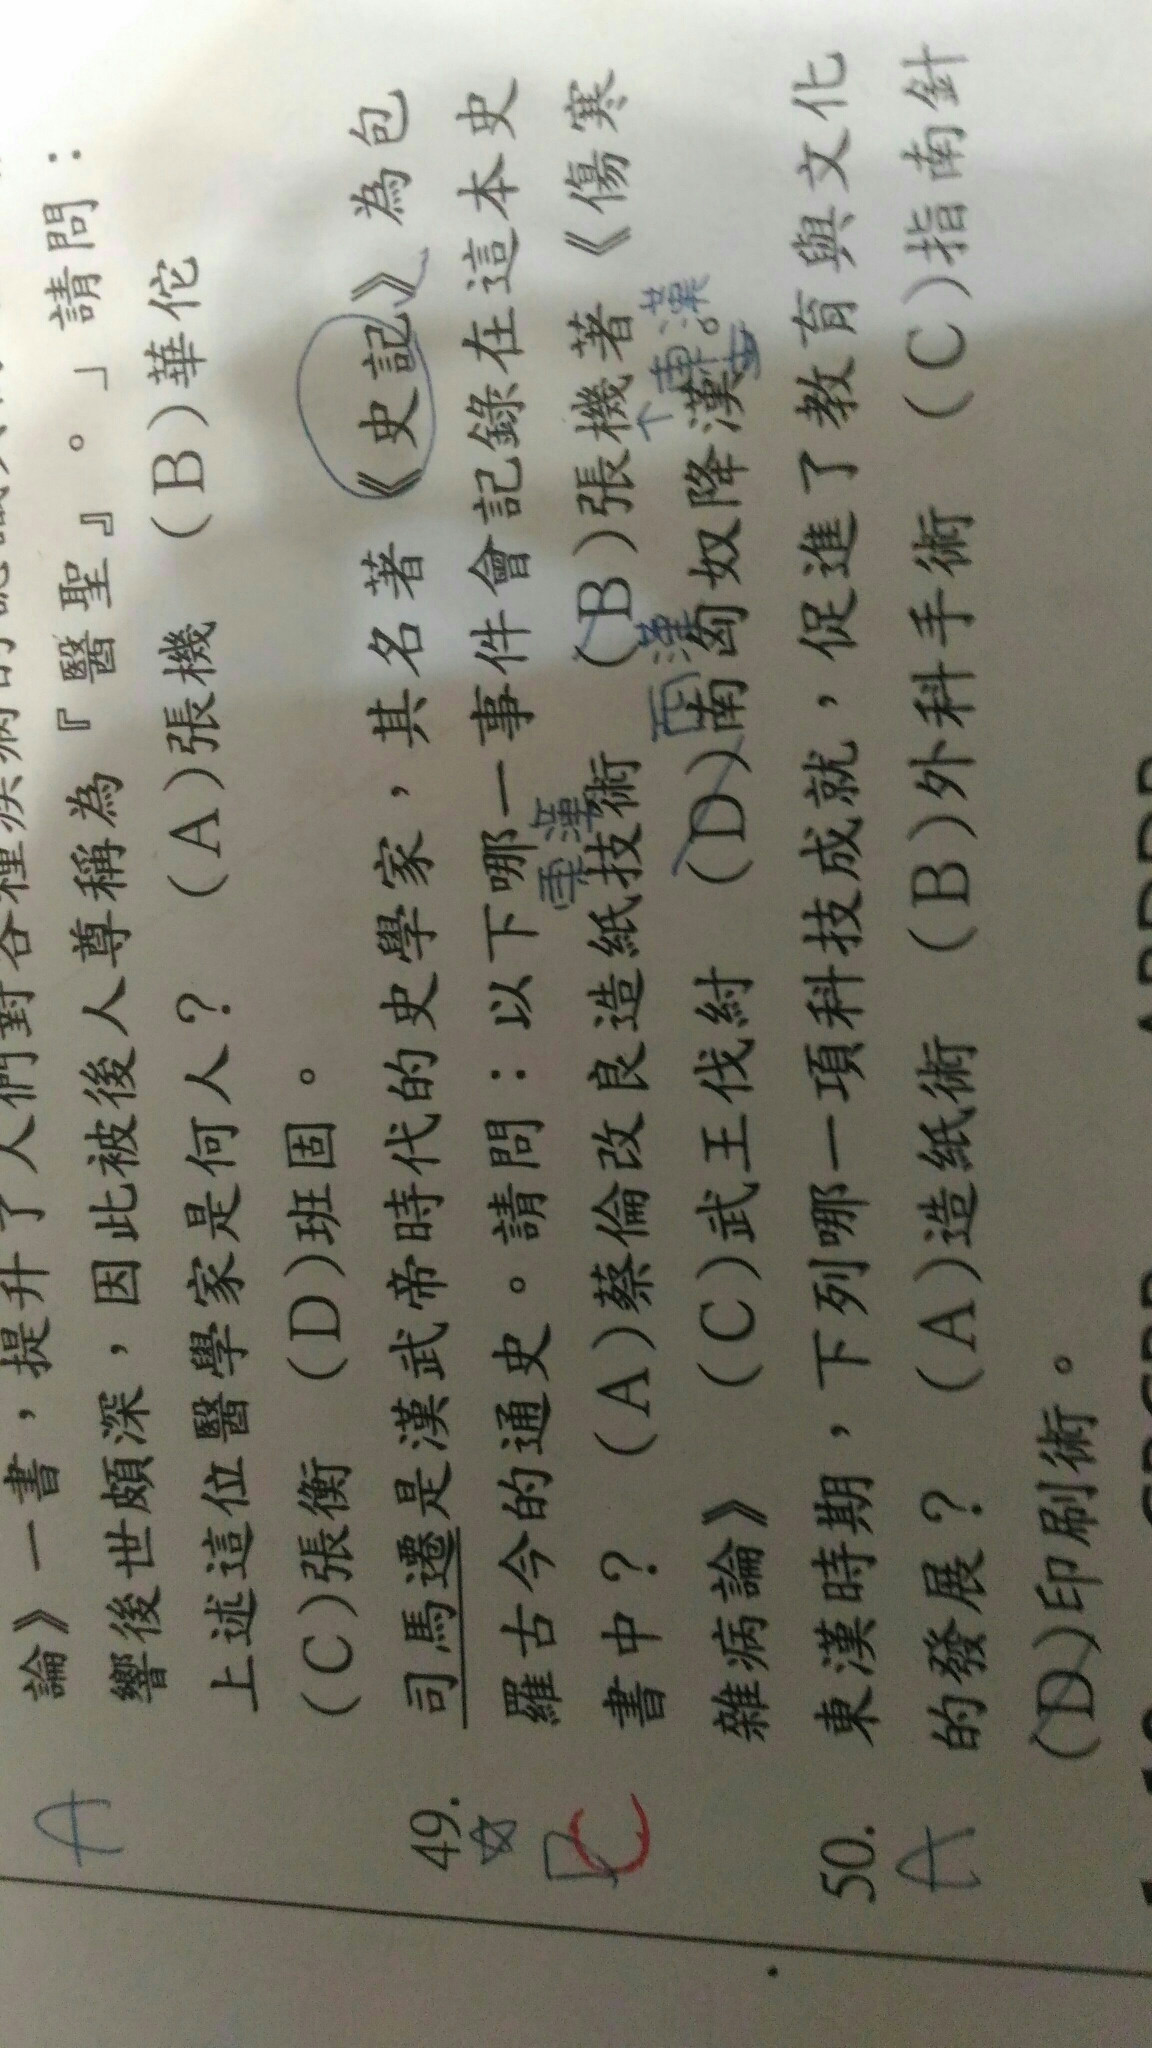 論》一書，提升了人們對各種疾病的認識
響後世頗深，因此被後人尊稱為『醫聖』。」請問：
上述這位醫學家是何人？ (A)張機 (B)華佗
(C)張衡 (D)班固。
A
49. 司馬遷是漢武帝時代的史學家，其名著《史記》為包
羅古今的通史。請問：以下哪一事件會記錄在這本史
東漢
書中？ (A)蔡倫改良造紙技術 (B)張機著《傷寒
西漢
雜病論》 (C)武王伐紂 (D)南匈奴降漢。
C
50. 東漢時期，下列哪一項科技成就，促進了教育與文化
的發展？ (A)造紙術 (B)外科手術 (C)指南針
(D)印刷術。
A